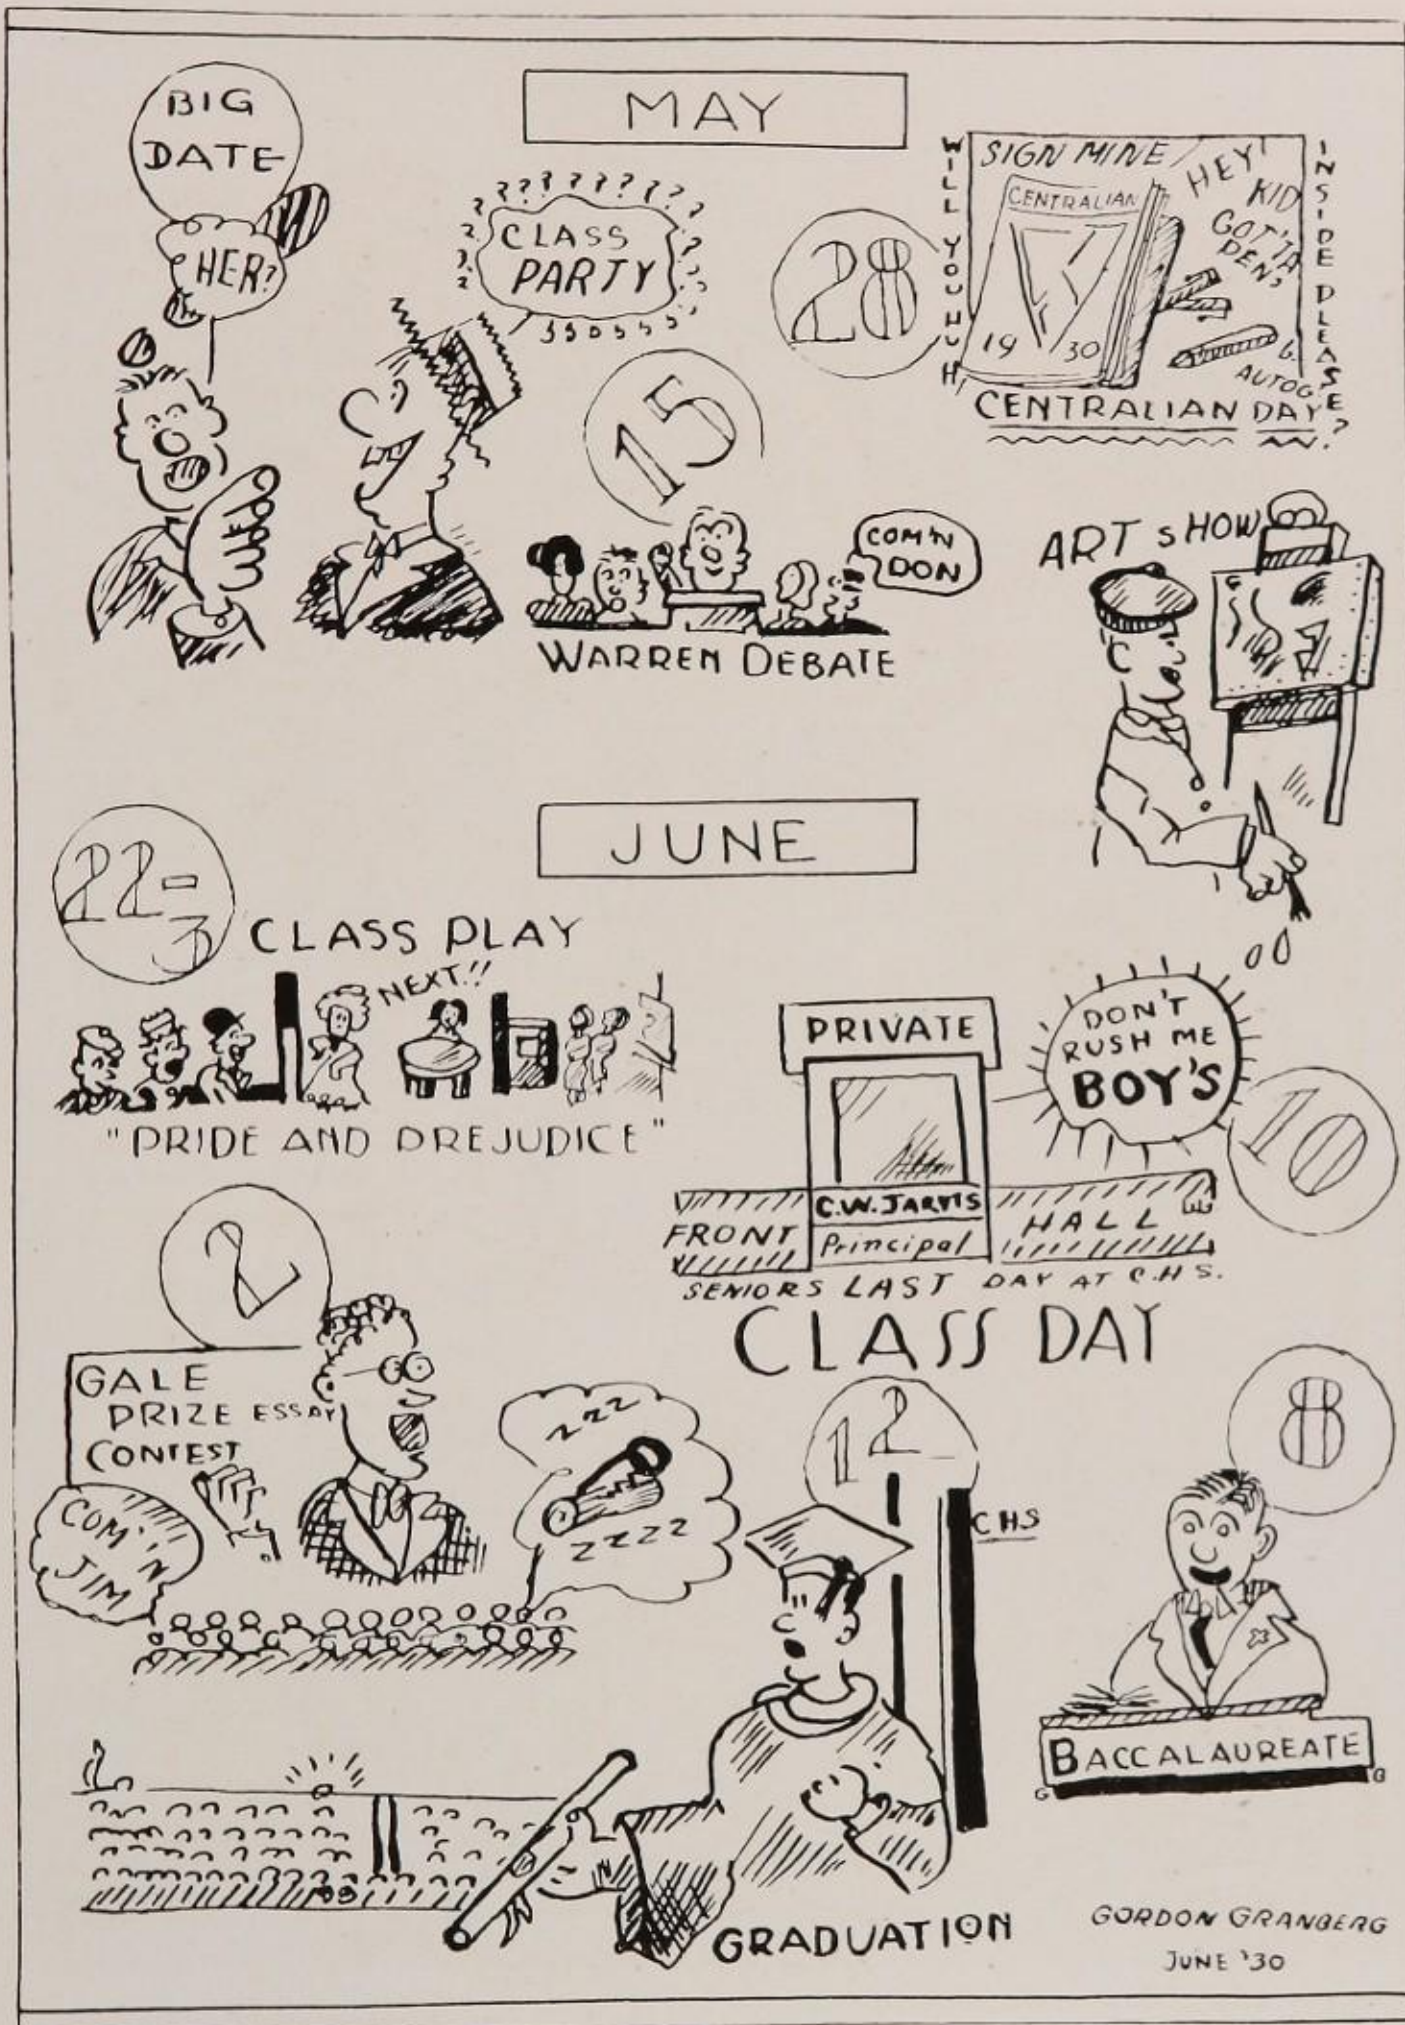 MAY
BIG
DATE
HER?
? ? ? ? ? ? ? ?
CLASS
PARTY
28
WILL YOU HUH
SIGN MINE
HEY!
KID
GOT'TA
PEN?
CENTRALIAN
19 30
AUTOG.
INSIDE PLEASE?
CENTRALIAN DAY
15
COM'N
DON
WARREN DEBATE
ART SHOW
JUNE
22-3
CLASS PLAY
NEXT!!
"PRIDE AND PREJUDICE"
PRIVATE
DON'T
RUSH ME
BOY'S
10
C.W. JARVIS
Principal
FRONT HALL
SENIORS LAST DAY AT C.H.S.
CLASS DAY
2
GALE
PRIZE ESSAY
CONTEST
COM'N
JIM
ZZZ
ZZZZ
12
C H S
GRADUATION
8
BACCALAUREATE
GORDON GRANBERG
JUNE '30